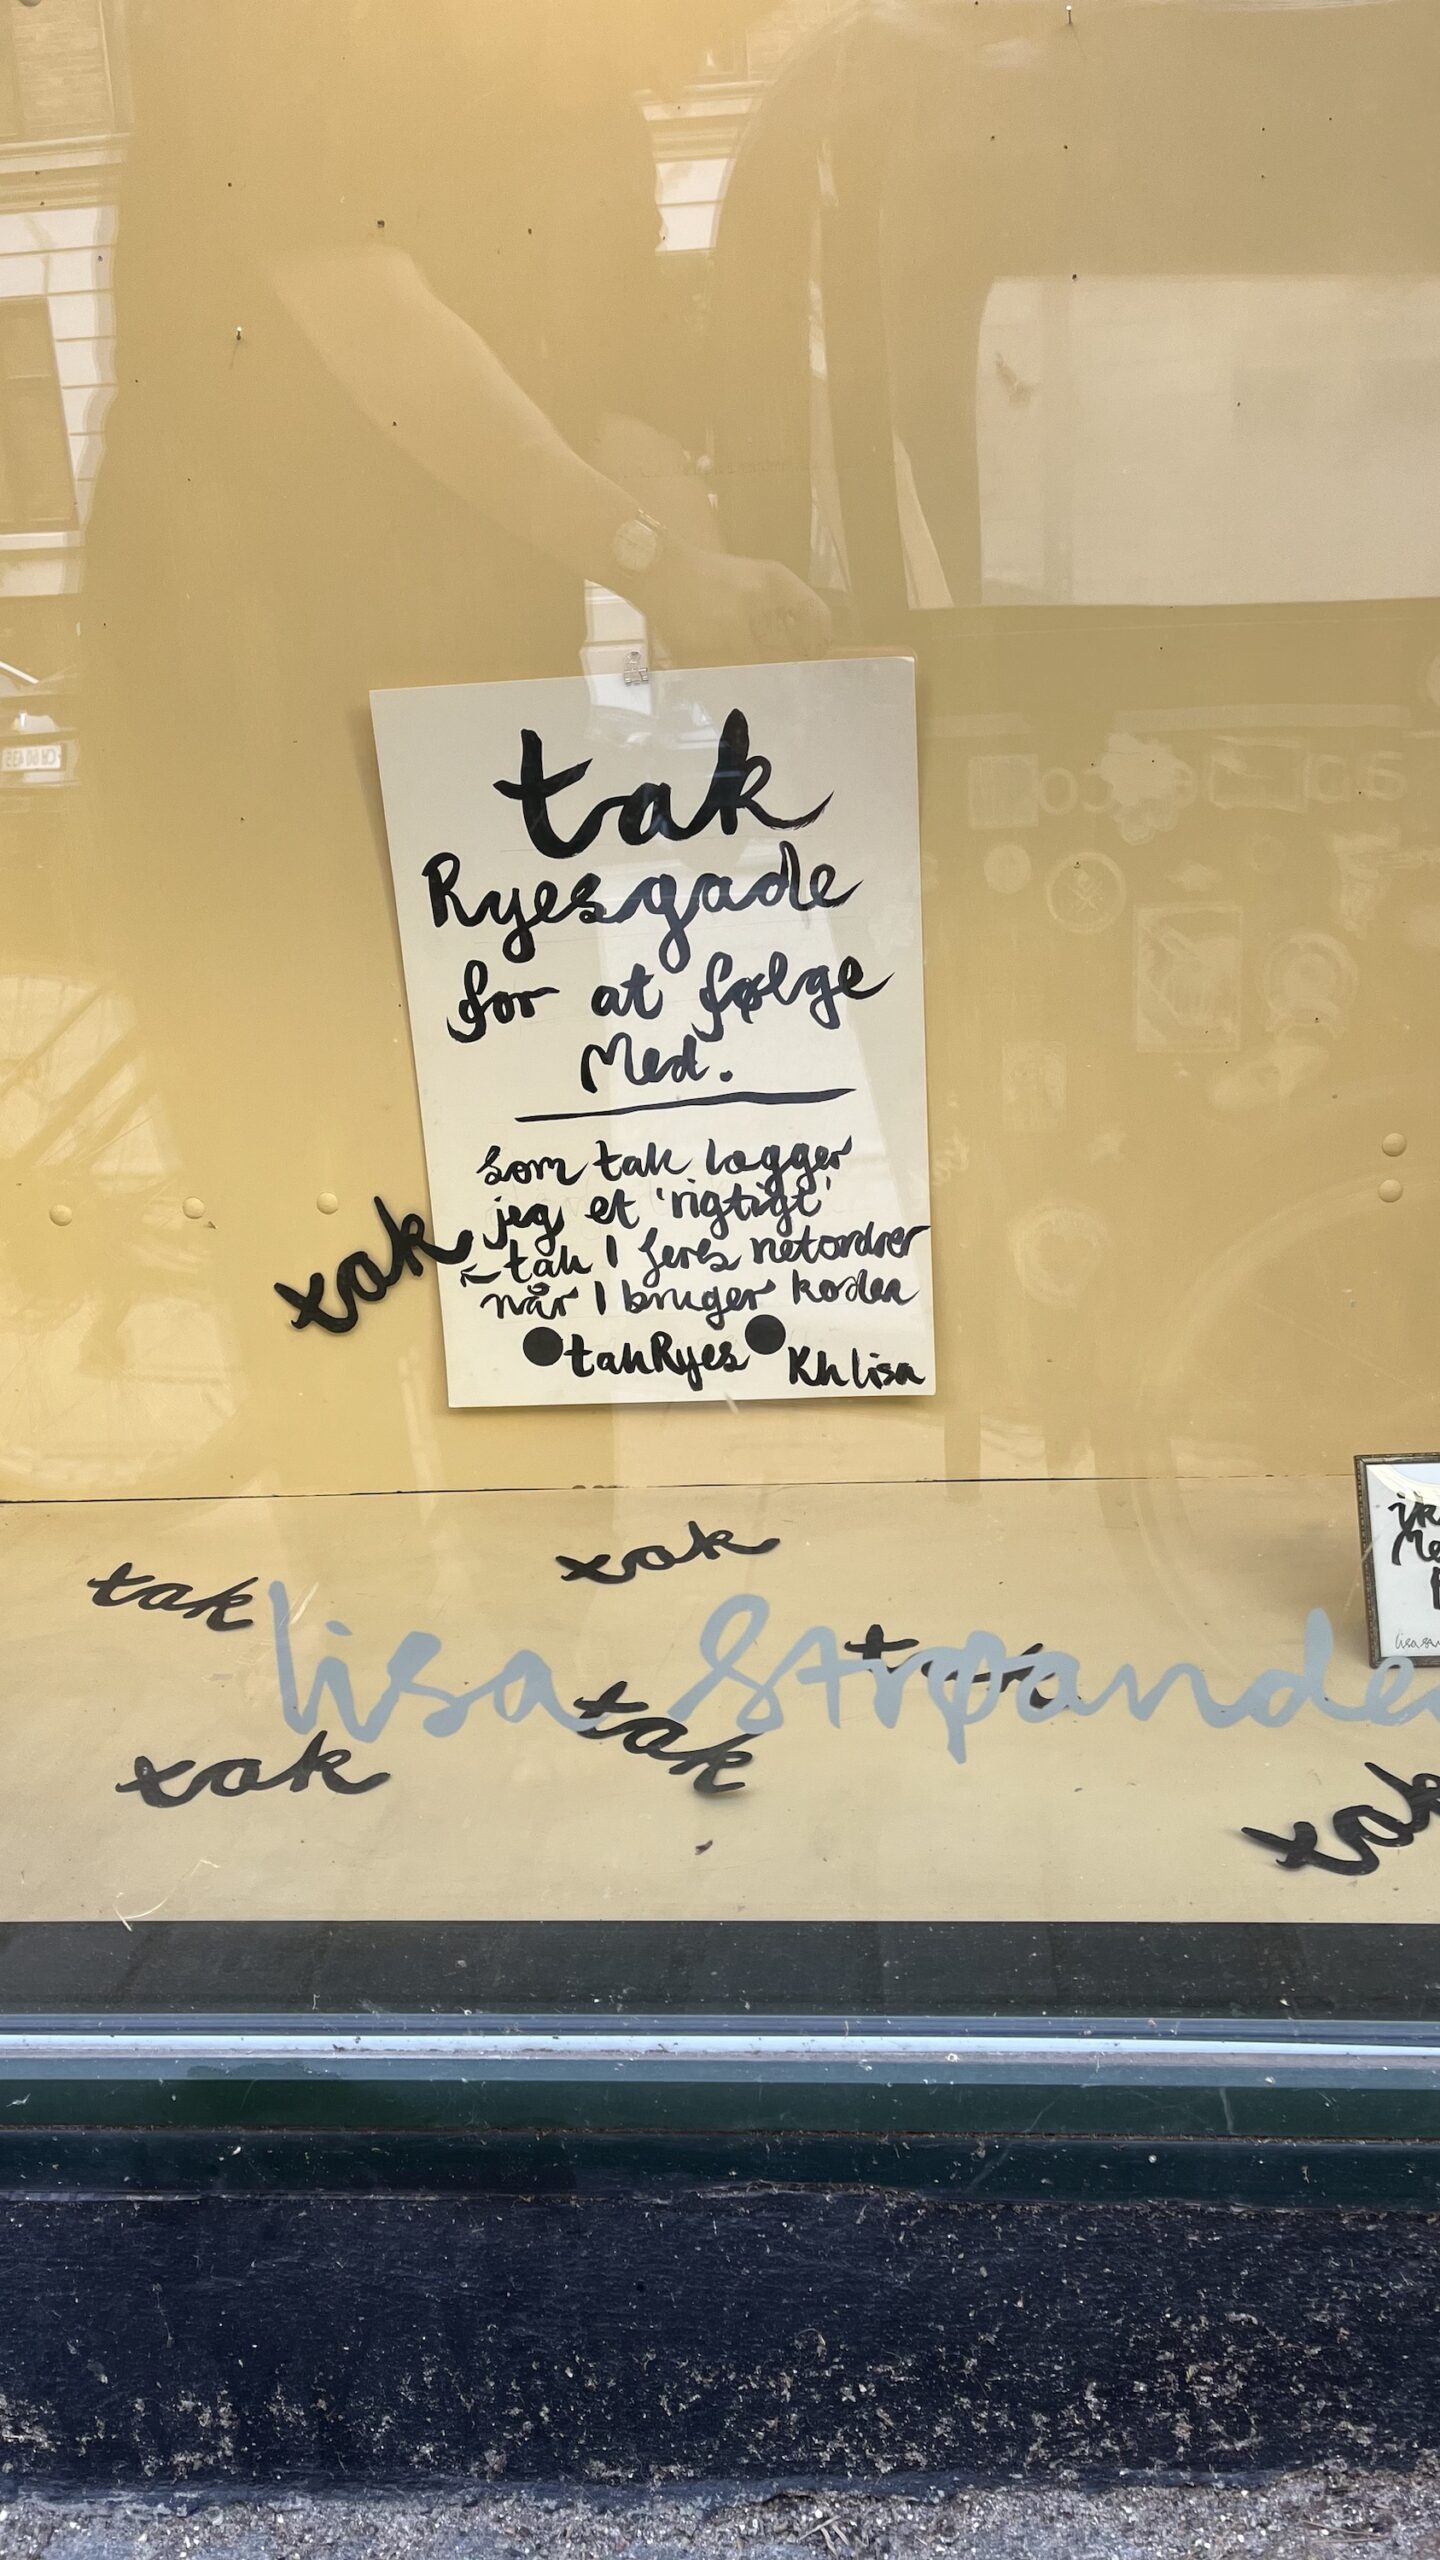 tak
Ryesgade
for at følge
Med.
som tak lægger
jeg et 'rigtigt'
tak I jeres netordrer
når I bruger koden
takRyes
Kh lisa
tak
tak
tak
lisa Strøande
tak
tak
tak
tak